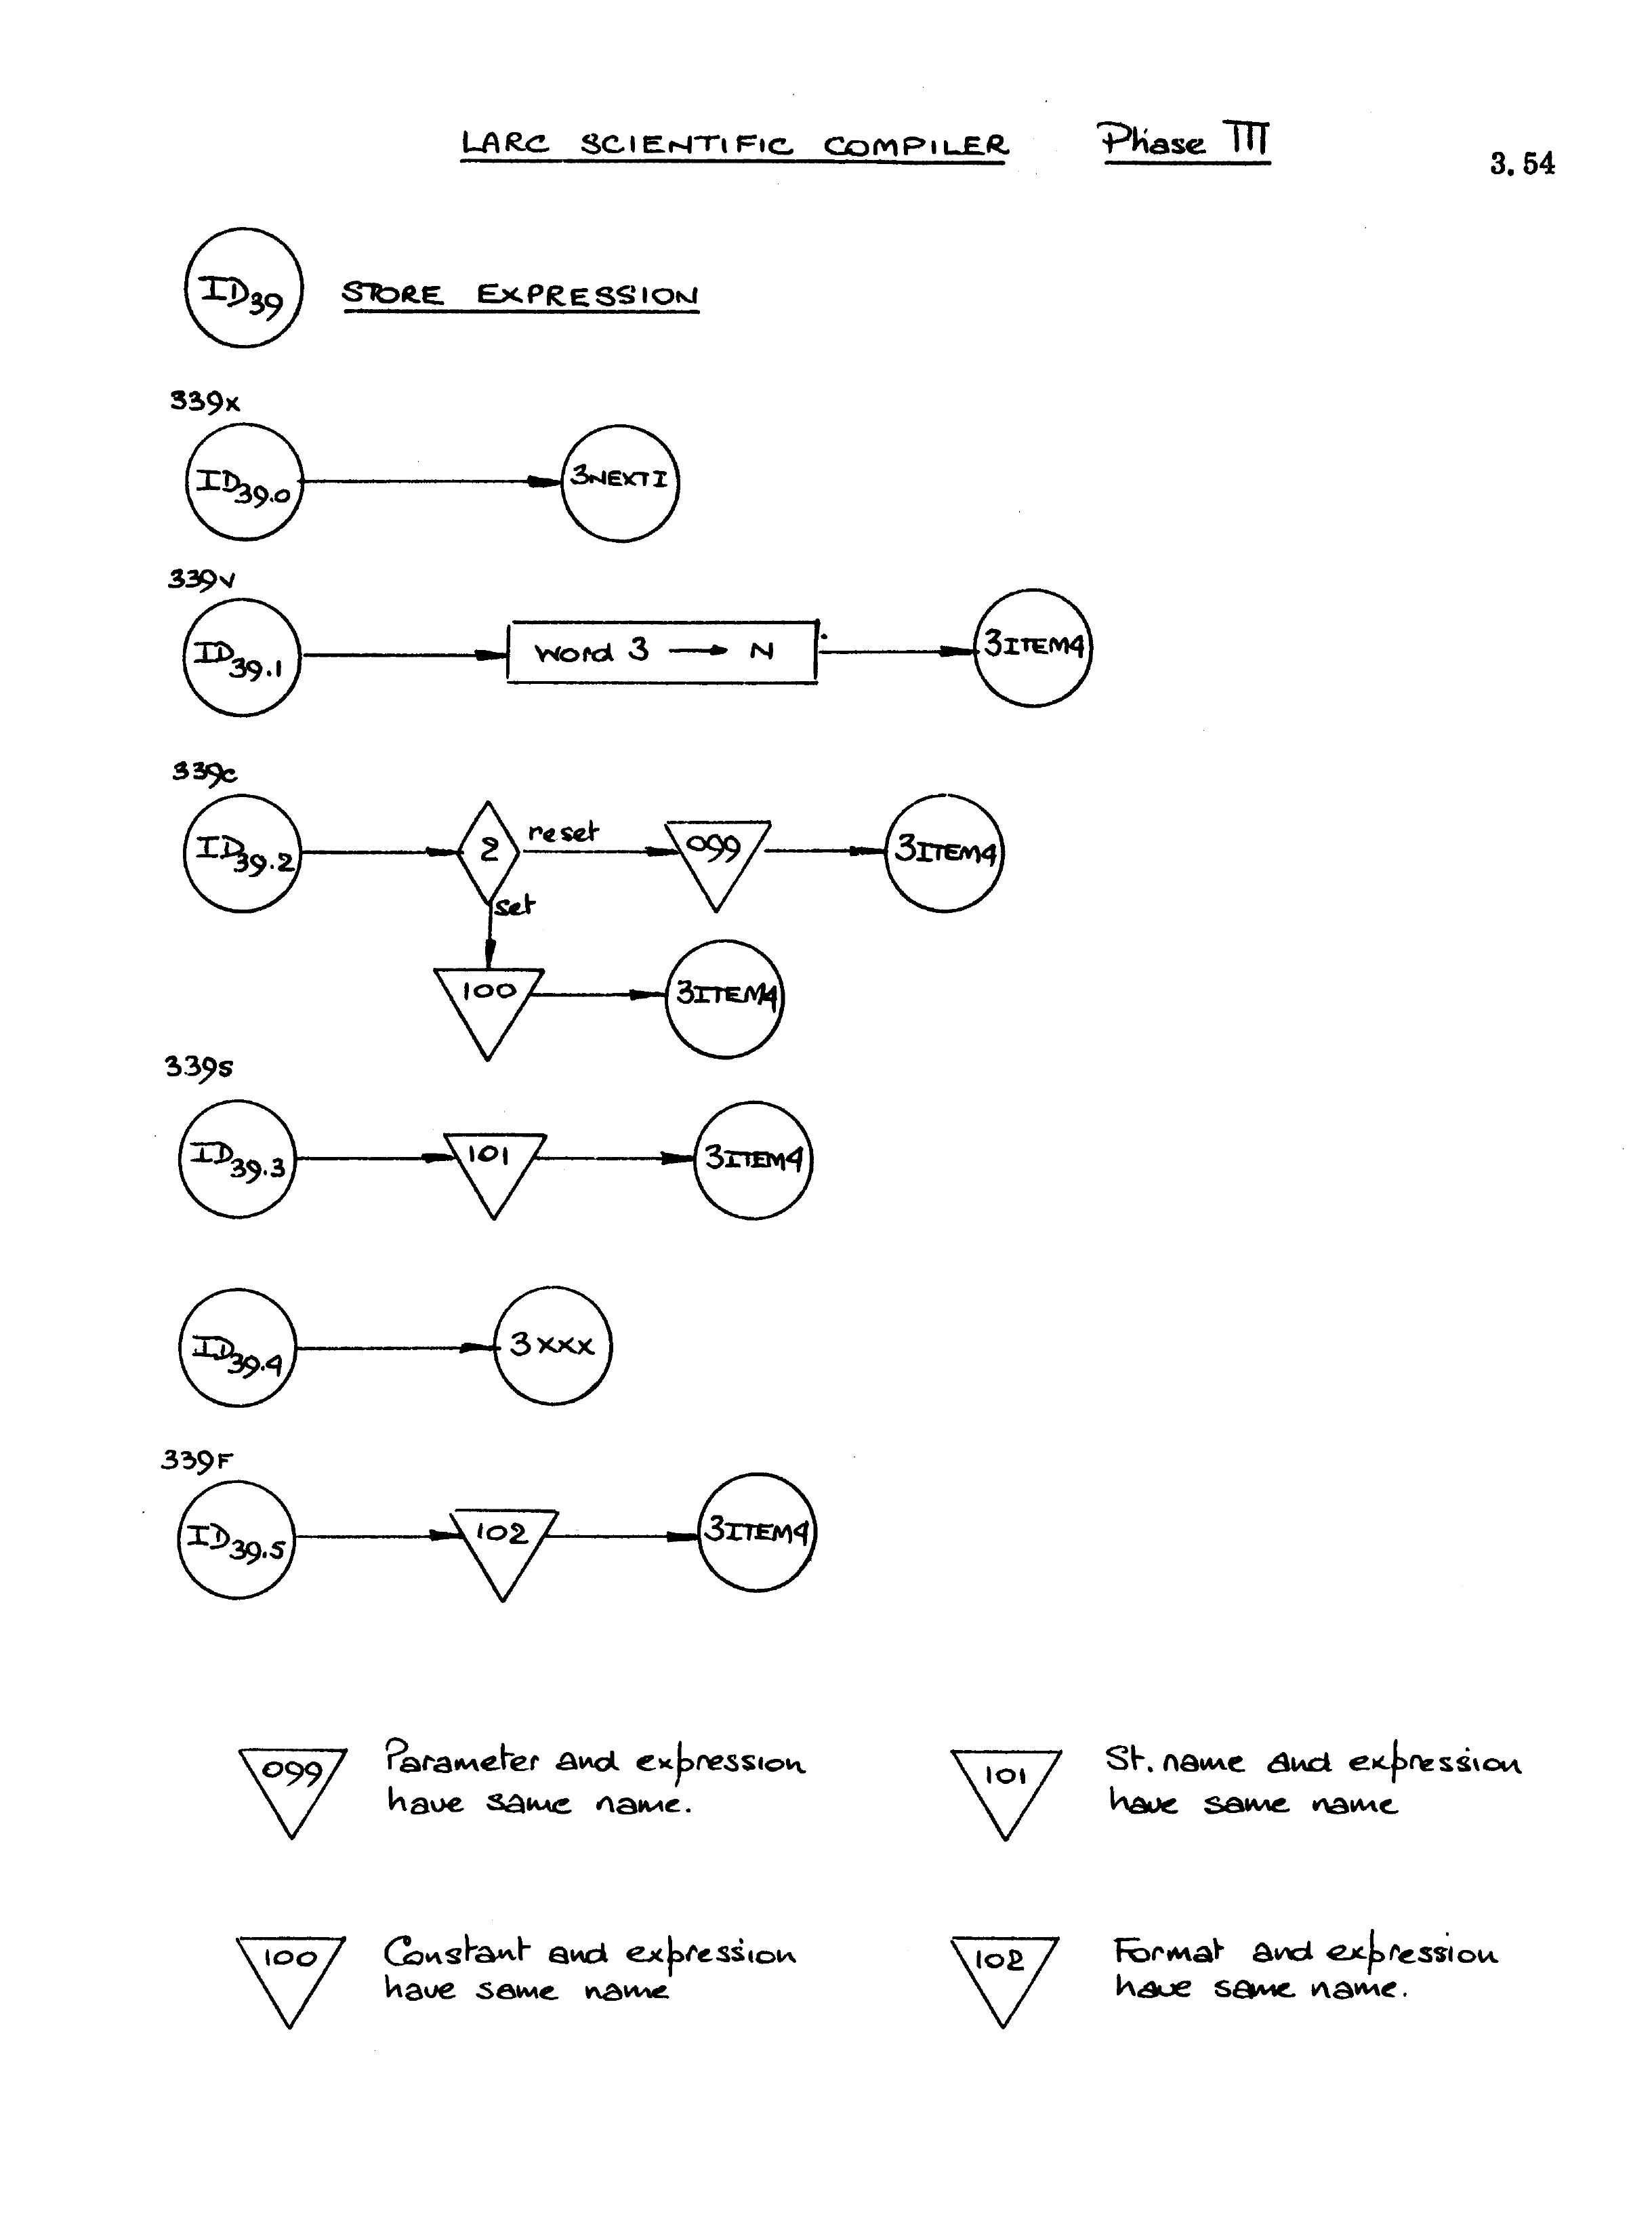 LARC SCIENTIFIC COMPILER Phase III
3.54
ID39 STORE EXPRESSION
339x
ID39.0 3NEXTI
339v
ID39.1 Word 3 → N 3ITEM4
339c
ID39.2 2 reset 099 3ITEM4
set
100 3ITEM4
339s
ID39.3 101 3ITEM4
ID39.4 3xxx
339F
ID39.5 102 3ITEM4
099 Parameter and expression
have same name.
101 St. name and expression
have same name
100 Constant and expression
have same name
102 Format and expression
have same name.